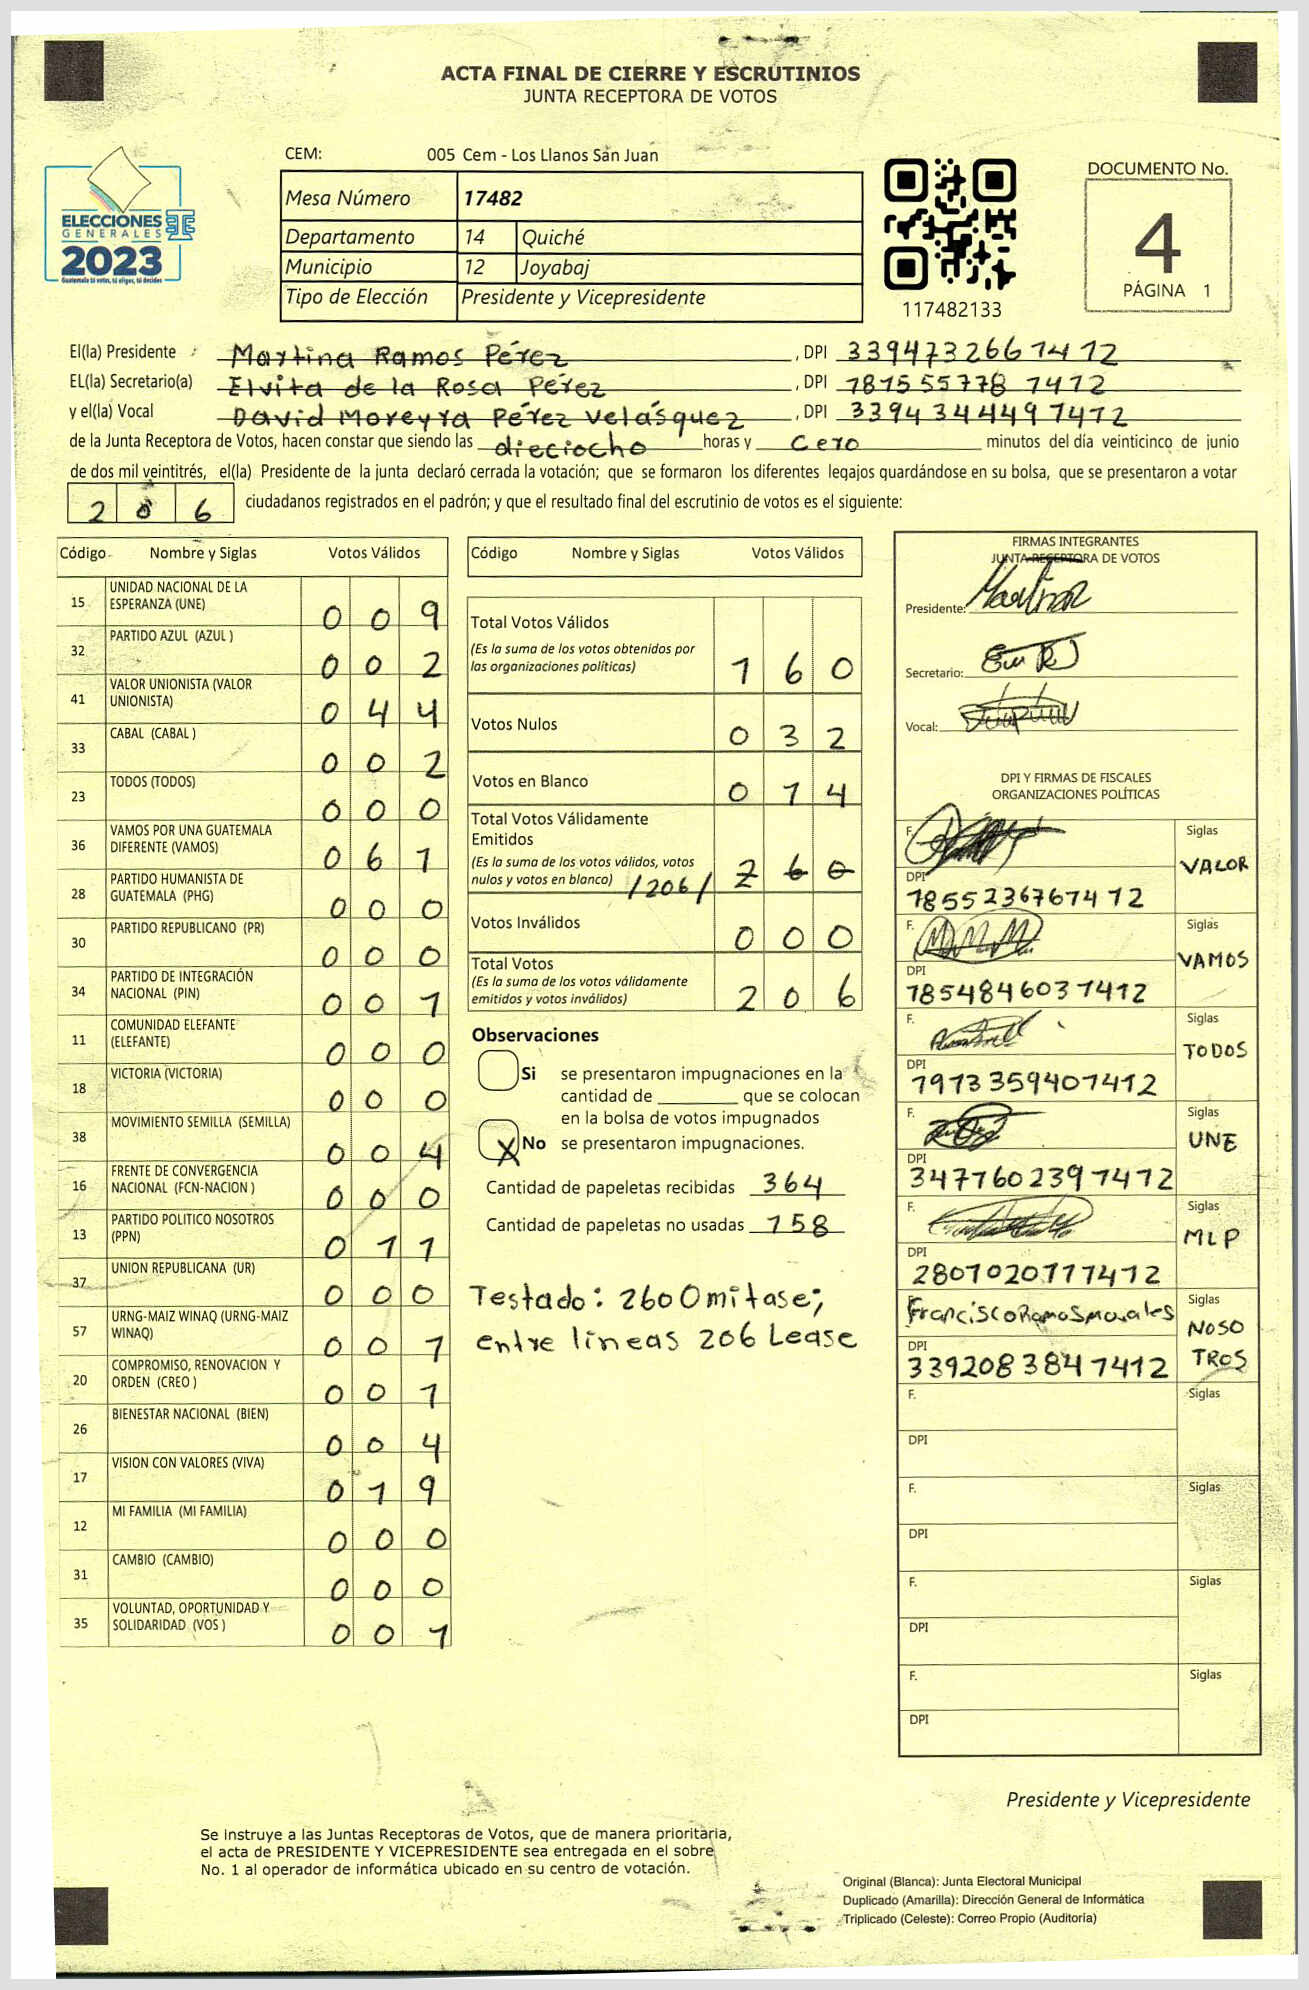 ACTA FINAL DE CIERRE Y ESCRUTINIOS
JUNTA RECEPTORA DE VOTOS
ELECCIONES
GENERALES
2023
Guatemala tú votas, tú eliges, tú decides
CEM: 005 Cem - Los Llanos San Juan
Mesa Número 17482
Departamento 14 Quiché
Municipio 12 Joyabaj
Tipo de Elección Presidente y Vicepresidente
117482133
DOCUMENTO No.
4
PÁGINA 1
El(la) Presidente Martina Ramos Pérez , DPI 3394732661412
EL(la) Secretario(a) Elvita de la Rosa Pérez , DPI 1815557781412
y el(la) Vocal David Moreyra Pérez Velásquez , DPI 3394344491412
de la Junta Receptora de Votos, hacen constar que siendo las dieciocho horas y Cero minutos del día veinticinco de junio
de dos mil veintitrés, el(la) Presidente de la junta declaró cerrada la votación; que se formaron los diferentes legajos quardándose en su bolsa, que se presentaron a votar
206 ciudadanos registrados en el padrón; y que el resultado final del escrutinio de votos es el siguiente:
Código Nombre y Siglas Votos Válidos
15 UNIDAD NACIONAL DE LA ESPERANZA (UNE) 009
32 PARTIDO AZUL (AZUL ) 002
41 VALOR UNIONISTA (VALOR UNIONISTA) 044
33 CABAL (CABAL ) 002
23 TODOS (TODOS) 000
36 VAMOS POR UNA GUATEMALA DIFERENTE (VAMOS) 061
28 PARTIDO HUMANISTA DE GUATEMALA (PHG) 000
30 PARTIDO REPUBLICANO (PR) 000
34 PARTIDO DE INTEGRACIÓN NACIONAL (PIN) 001
11 COMUNIDAD ELEFANTE (ELEFANTE) 000
18 VICTORIA (VICTORIA) 000
38 MOVIMIENTO SEMILLA (SEMILLA) 004
16 FRENTE DE CONVERGENCIA NACIONAL (FCN-NACION ) 000
13 PARTIDO POLITICO NOSOTROS (PPN) 011
37 UNION REPUBLICANA (UR) 000
57 URNG-MAIZ WINAQ (URNG-MAIZ WINAQ) 001
20 COMPROMISO, RENOVACION Y ORDEN (CREO ) 001
26 BIENESTAR NACIONAL (BIEN) 004
17 VISION CON VALORES (VIVA) 019
12 MI FAMILIA (MI FAMILIA) 000
31 CAMBIO (CAMBIO) 000
35 VOLUNTAD, OPORTUNIDAD Y SOLIDARIDAD (VOS ) 001
Código Nombre y Siglas Votos Válidos
Total Votos Válidos
(Es la suma de los votos obtenidos por
las organizaciones políticas) 160
Votos Nulos 032
Votos en Blanco 014
Total Votos Válidamente
Emitidos
(Es la suma de los votos válidos, votos
nulos y votos en blanco) /206/ 260
Votos Inválidos 000
Total Votos
(Es la suma de los votos válidamente
emitidos y votos inválidos) 206
Observaciones
Si se presentaron impugnaciones en la
cantidad de ________ que se colocan
en la bolsa de votos impugnados
X No se presentaron impugnaciones.
Cantidad de papeletas recibidas 364
Cantidad de papeletas no usadas 158
Testado: 260 Omitase;
entre lineas 206 Lease
FIRMAS INTEGRANTES
JUNTA RECEPTORA DE VOTOS
Presidente:
Secretario:
Vocal:
DPI Y FIRMAS DE FISCALES
ORGANIZACIONES POLÍTICAS
F. Siglas
VALOR
DPI
1855236761412
F. Siglas
VAMOS
DPI
1854846031412
F. Siglas
TODOS
DPI
1973359401412
F. Siglas
UNE
DPI
3477602391412
F. Siglas
MLP
DPI
2801020111412
Francisco Ramos morales Siglas
NOSO
TROS
DPI
3392083841412
F. Siglas
DPI
F. Siglas
DPI
F. Siglas
DPI
F. Siglas
DPI
Presidente y Vicepresidente
Se instruye a las Juntas Receptoras de Votos, que de manera prioritaria,
el acta de PRESIDENTE Y VICEPRESIDENTE sea entregada en el sobre
No. 1 al operador de informática ubicado en su centro de votación.
Original (Blanca): Junta Electoral Municipal
Duplicado (Amarilla): Dirección General de Informática
Triplicado (Celeste): Correo Propio (Auditoría)